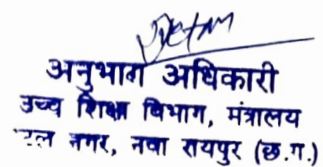 अनुभाग अधिकारी
उच्च शिक्षा विभाग, मंत्रालय
नगर, नवा रायपुर (छ.ग.)